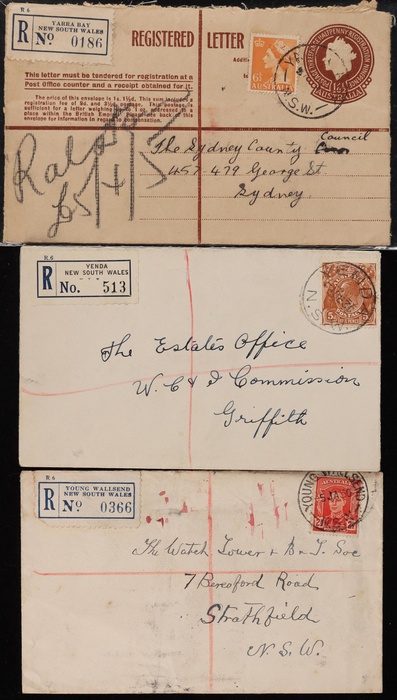 R 6
YARRA BAY
NEW SOUTH WALES
R No 0186
REGISTERED LETTER
This letter must be tendered for registration at a
Post Office counter and a receipt obtained for it.
The price of this envelope is 1s. 0½d. This sum includes a
registration fee of 9d. and 3½d. postage. This sum is
sufficient for a letter weighing up to 1 oz. addressed to a
place within the British
information for regard to
6½
AUSTRALIA
N.S.W.
Council
The Sydney County
457-479 George St
Sydney.
R 6
YENDA
NEW SOUTH WALES
R No. 513
YENDA
N.S.W
The Estates Office
W. C & I Commission
Griffith
R 6
YOUNG WALLSEND
NEW SOUTH WALES
R No 0366
YOUNG WALLSEND
AUSTRALIA
The Watch Tower & B. T. Soc
7 Beresford Road
Strathfield
N.S.W.